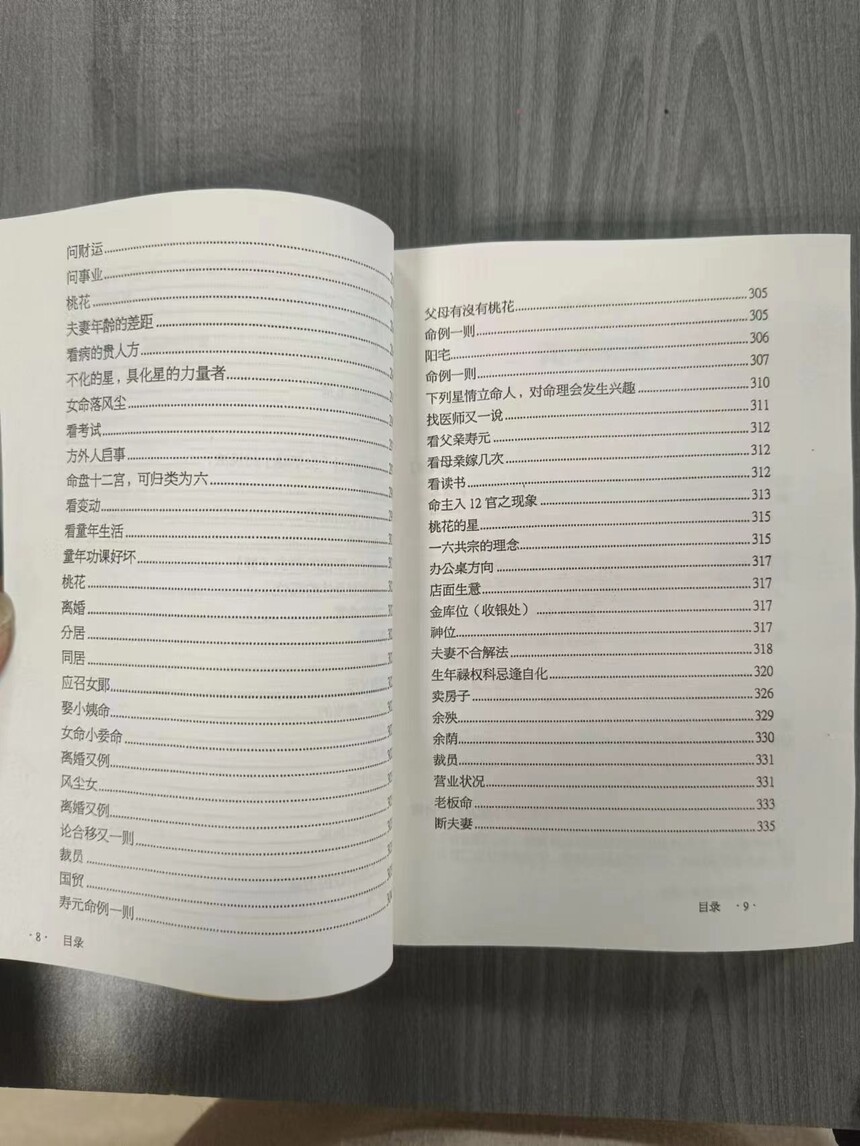 问财运
问事业
桃花
夫妻年龄的差距
看病的贵人方
不化的星，具化星的力量者
女命落风尘
看考试
方外人启事
命盘十二宫，可归类为六
看变动
看童年生活
童年功课好坏
桃花
离婚
分居
同居
应召女郞
娶小姨命
女命小妾命
离婚又例
风尘女
离婚又例
论合移又一则
裁员
国贸
寿元命例一则
·8· 目录
父母有沒有桃花 305
命例一则 305
阳宅 306
命例一则 307
下列星情立命人，对命理会发生兴趣 310
找医师又一说 311
看父亲寿元 312
看母亲嫁几次 312
看读书 312
命主入12官之现象 313
桃花的星 315
一六共宗的理念 315
办公桌方向 317
店面生意 317
金库位（收银处） 317
神位 317
夫妻不合解法 318
生年禄权科忌逢自化 320
卖房子 326
余殃 329
余荫 330
裁员 331
营业状况 331
老板命 333
断夫妻 335
目录 ·9·